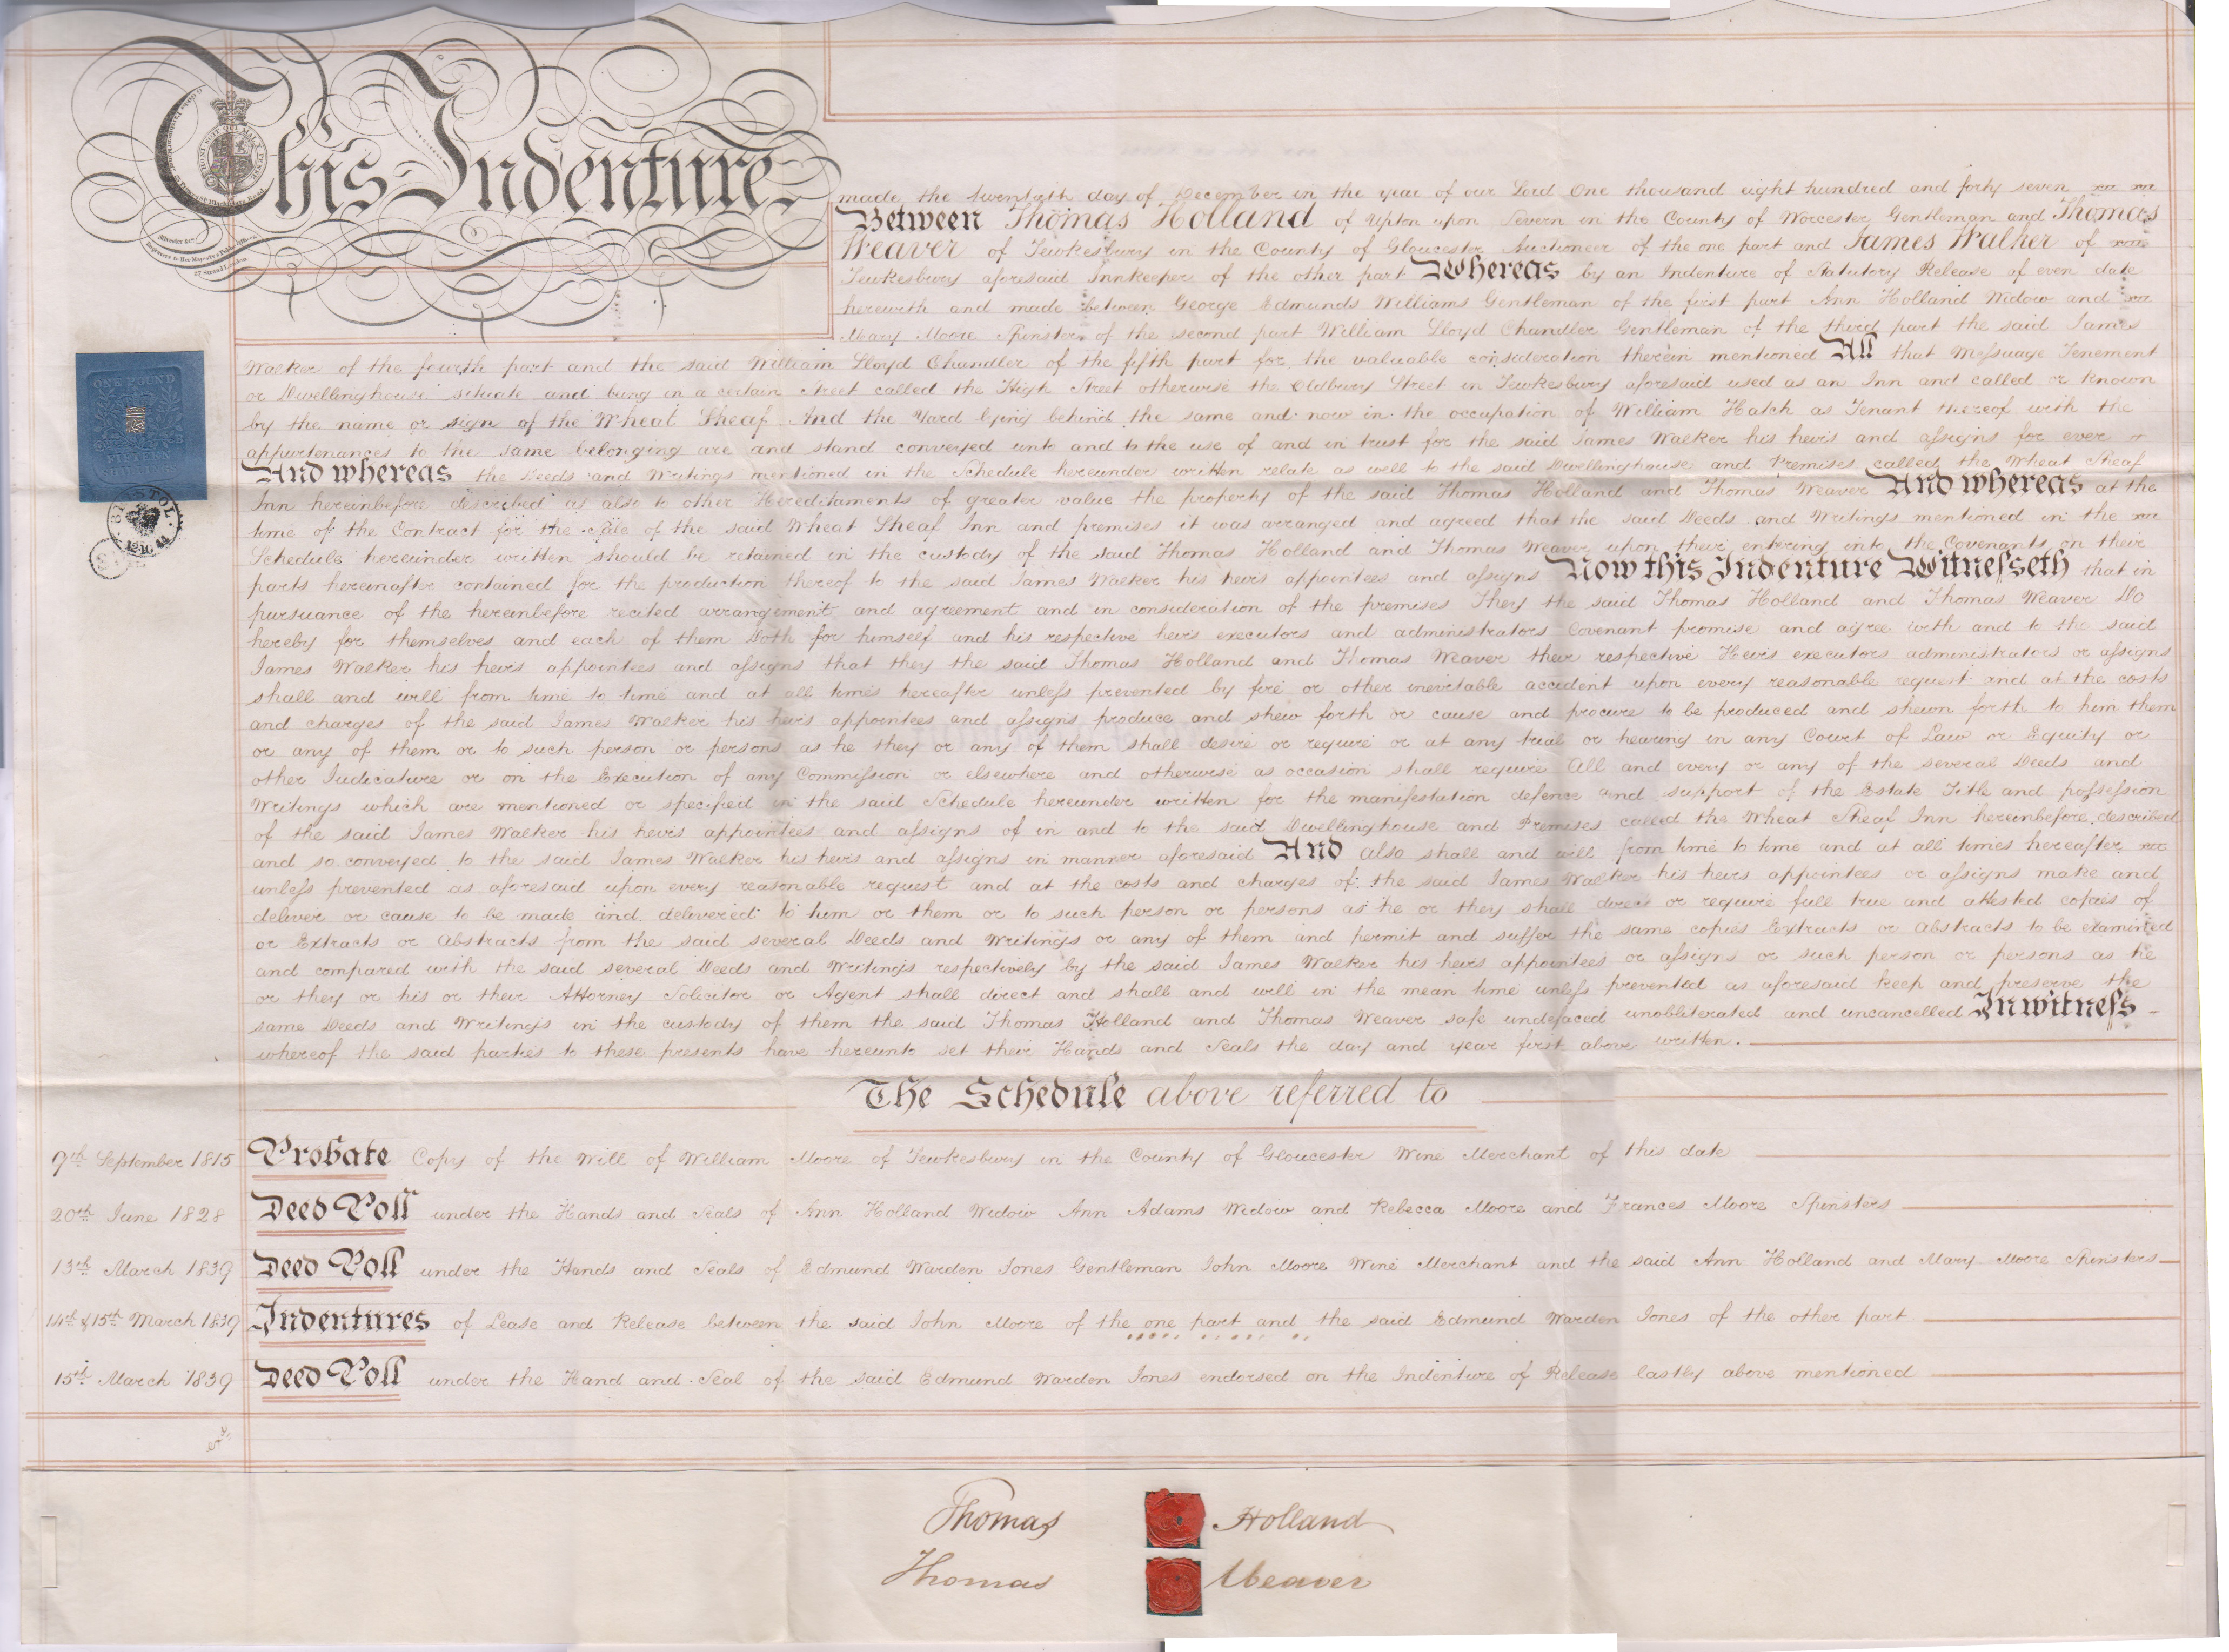 This Indenture
made the twentieth day of December in the year of our Lord One thousand eight hundred and forty seven
Between Thomas Holland of Upton upon Severn in the County of Worcester Gentleman and Thomas
Weaver of Tewkesbury in the County of Gloucester Auctioneer of the one part and James Walker of
Tewkesbury aforesaid Innkeeper of the other part Whereas by an Indenture of Statutory Release of even date
herewith and made between George Edmunds Williams Gentleman of the first part Ann Holland Widow and
Mary Moore Spinster of the second part William Lloyd Chandler Gentleman of the third part the said James
Walker of the fourth part and the said William Lloyd Chandler of the fifth part for the valuable consideration therein mentioned All that Messuage Tenement
or Dwellinghouse situate and being in a certain Street called the High Street otherwise the Oldbury Street in Tewkesbury aforesaid used as an Inn and called or known
by the name or sign of the Wheat Sheaf And the Yard lying behind the same and now in the occupation of William Hatch as Tenant thereof with the
appurtenances to the same belonging are and stand conveyed unto and to the use of and in trust for the said James Walker his heirs and assigns for ever
And whereas the Deeds and Writings mentioned in the Schedule hereunder written relate as well to the said Dwellinghouse and Premises called the Wheat Sheaf
Inn hereinbefore described as also to other Hereditaments of greater value the property of the said Thomas Holland and Thomas Weaver And whereas at the
time of the Contract for the sale of the said Wheat Sheaf Inn and premises it was arranged and agreed that the said Deeds and Writings mentioned in the
Schedule hereunder written should be retained in the custody of the said Thomas Holland and Thomas Weaver upon their entering into the Covenants on their
parts hereinafter contained for the production thereof to the said James Walker his heirs appointees and assigns Now this Indenture Witnesseth that in
pursuance of the hereinbefore recited arrangement and agreement and in consideration of the premises They the said Thomas Holland and Thomas Weaver Do
hereby for themselves and each of them Doth for himself and his respective heirs executors and administrators Covenant promise and agree with and to the said
James Walker his heirs appointees and assigns that they the said Thomas Holland and Thomas Weaver their respective Heirs executors administrators or assigns
shall and will from time to time and at all times hereafter unless prevented by fire or other inevitable accident upon every reasonable request and at the costs
and charges of the said James Walker his heirs appointees and assigns produce and shew forth or cause and procure to be produced and shewn forth to him them
or any of them or to such person or persons as he they or any of them shall desire or require or at any trial or hearing in any Court of Law or Equity or
other Judicature or on the Execution of any Commission or elsewhere and otherwise as occasion shall require All and every or any of the several Deeds and
Writings which are mentioned or specified in the said Schedule hereunder written for the manifestation defence and support of the Estate Title and possession
of the said James Walker his heirs appointees and assigns of in and to the said Dwellinghouse and Premises called the Wheat Sheaf Inn hereinbefore described
and so conveyed to the said James Walker his heirs and assigns in manner aforesaid And also shall and will from time to time and at all times hereafter
unless prevented as aforesaid upon every reasonable request and at the costs and charges of the said James Walker his heirs appointees or assigns make and
deliver or cause to be made and delivered to him or them or to such person or persons as he or they shall direct or require full true and attested copies of
or Extracts or Abstracts from the said several Deeds and Writings or any of them and permit and suffer the same copies Extracts or Abstracts to be examined
and compared with the said several Deeds and Writings respectively by the said James Walker his heirs appointees or assigns or such person or persons as he
or they or his or their Attorney Solicitor or Agent shall direct and shall and will in the mean time unless prevented as aforesaid keep and preserve the
same Deeds and Writings in the custody of them the said Thomas Holland and Thomas Weaver safe undefaced unobliterated and uncancelled In witness
whereof the said parties to these presents have hereunto set their Hands and Seals the day and year first above written.
ONE POUND
FIFTEEN
SHILLINGS
BRISTOL
The Schedule above referred to
9th September 1815 Probate Copy of the Will of William Moore of Tewkesbury in the County of Gloucester Wine Merchant of this date
20th June 1828 Deed Poll under the Hands and Seals of Ann Holland Widow Ann Adams Widow and Rebecca Moore and Frances Moore Spinsters
13th March 1839 Deed Poll under the Hands and Seals of Edmund Warden Jones Gentleman John Moore Wine Merchant and the said Ann Holland and Mary Moore Spinsters
14th & 15th March 1839 Indentures of Lease and Release between the said John Moore of the one part and the said Edmund Warden Jones of the other part
15th March 1839 Deed Poll under the Hand and Seal of the said Edmund Warden Jones endorsed on the Indenture of Release lastly above mentioned
Thomas Holland
Thomas Weaver